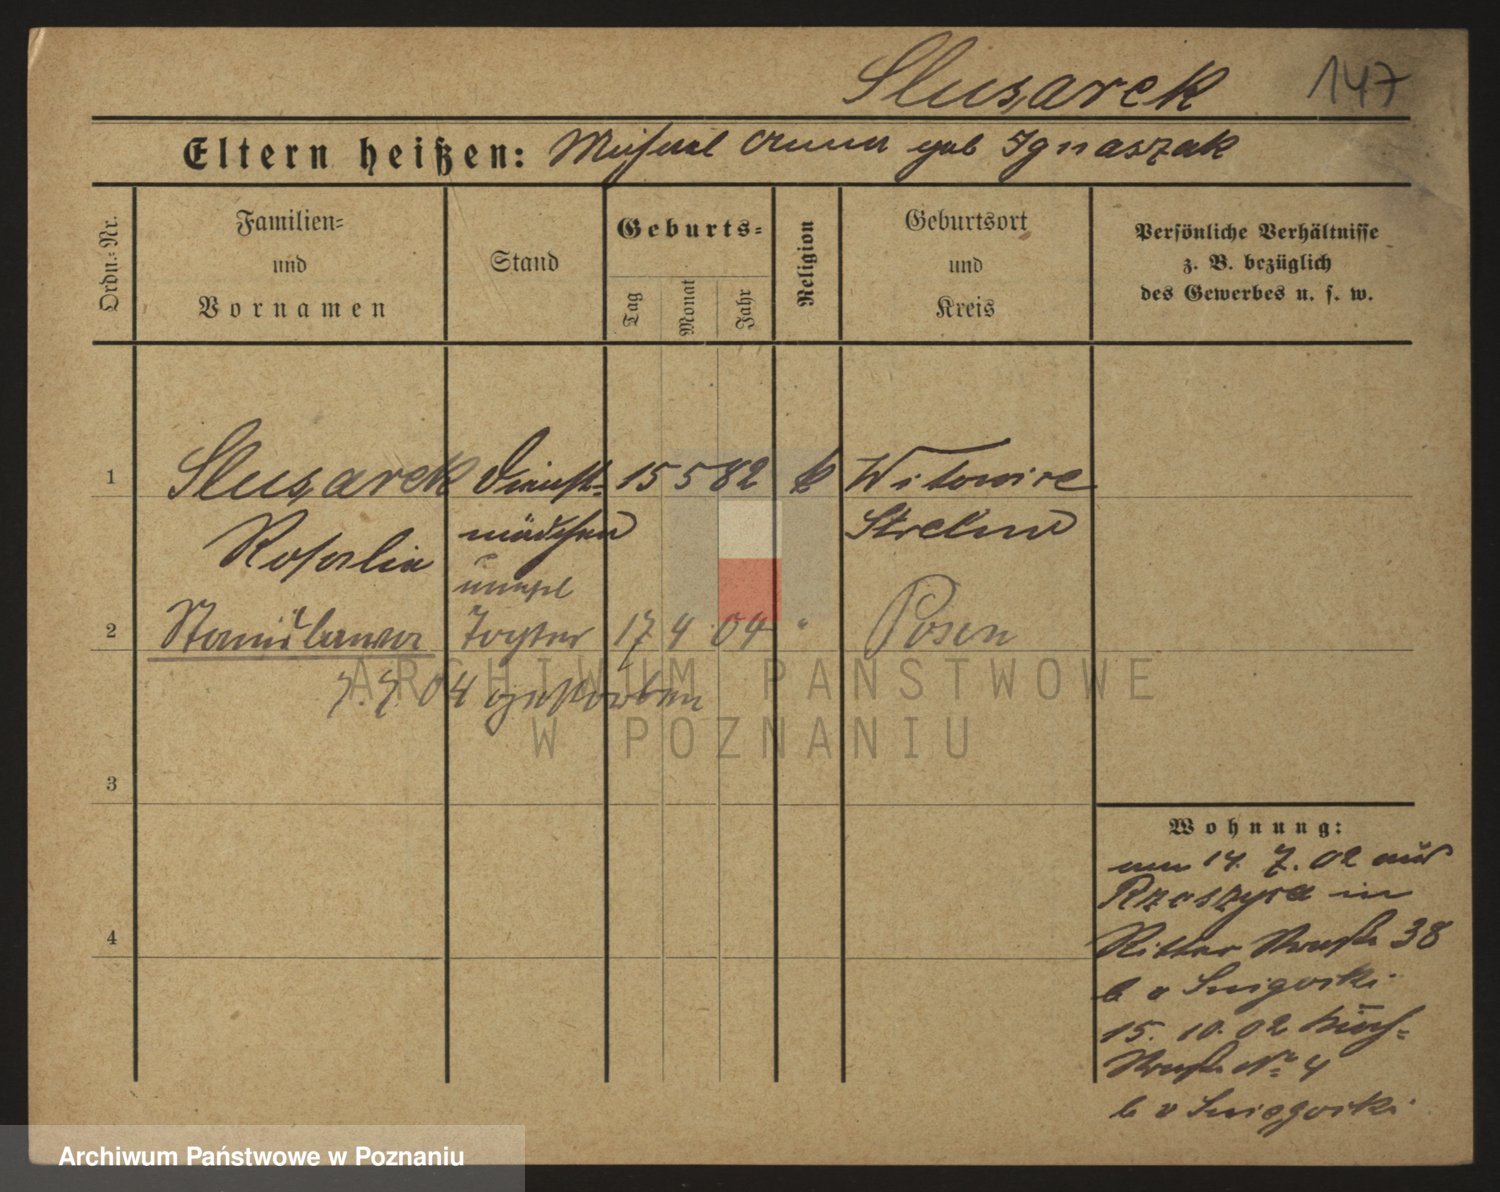 Slusarek 147
Eltern heißen: Michael Anna geb Ignaszak
Ordn.-Nr.
Familien-
und
Vornamen
Stand
Geburts-
Tag
Monat
Jahr
Religion
Geburtsort
und
Kreis
Persönliche Verhältnisse
z. B. bezüglich
des Gewerbes u. s. w.
1 Slusarek Dienst- 15 5 82 k Witowice
Rosalie mädchen Strelno
unehl
2 Stanislawa Tochter 17 4 04 " Posen
7. 7. 04 gestorben
3
4
Wohnung:
am 14. 7. 02 aus
in
Ritter Straße 38
b v
15. 10. 02
Straße No 4
b v
ARCHIWUM PAŃSTWOWE
W POZNANIU
Archiwum Państwowe w Poznaniu